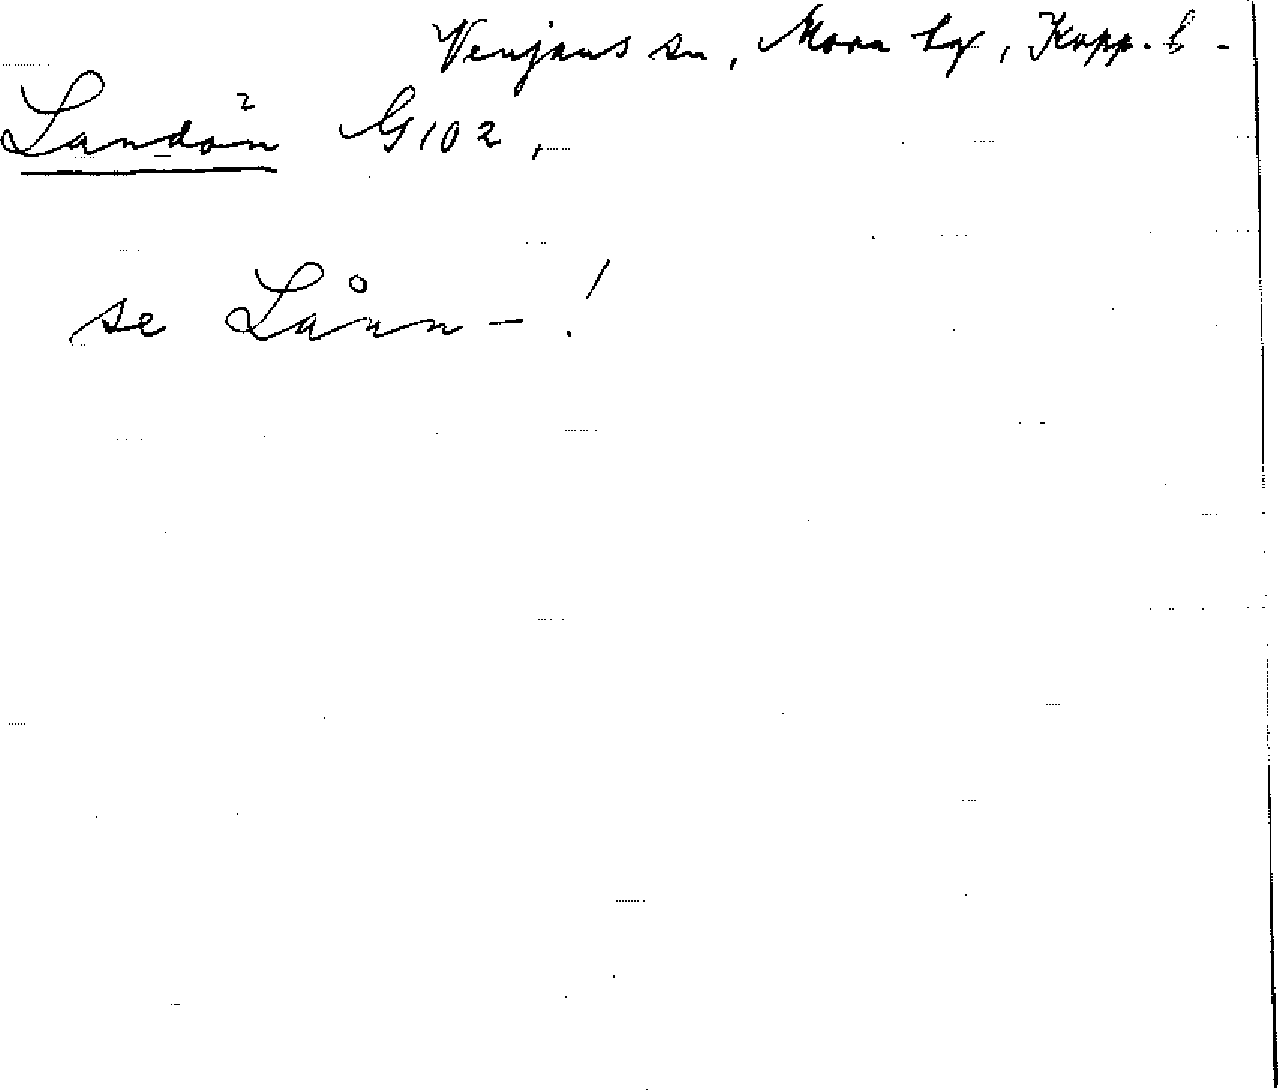 Venjans sn, Mora tg, Kopp. l.
Landön 2 G102,
se Lånn-!